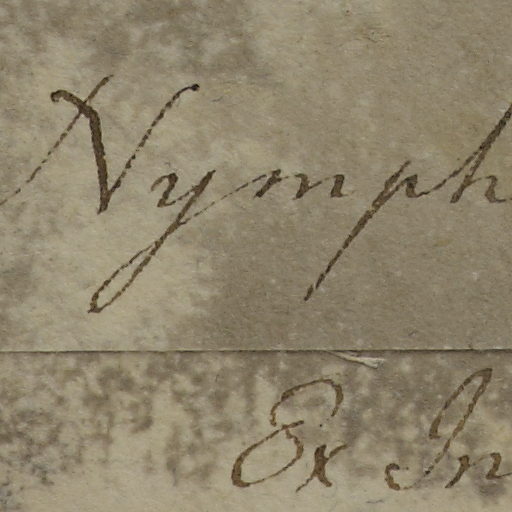 Nymph
Ex In